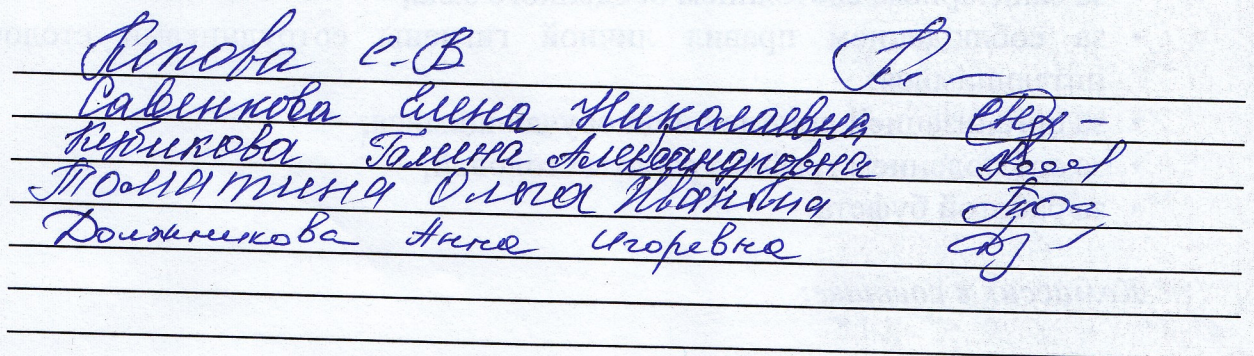 Репова С.В
Савенкова Елена Николаевна
Кубикова Галина Александровна
Томатина Ольга Ивановна
Должникова Анна Игоревна